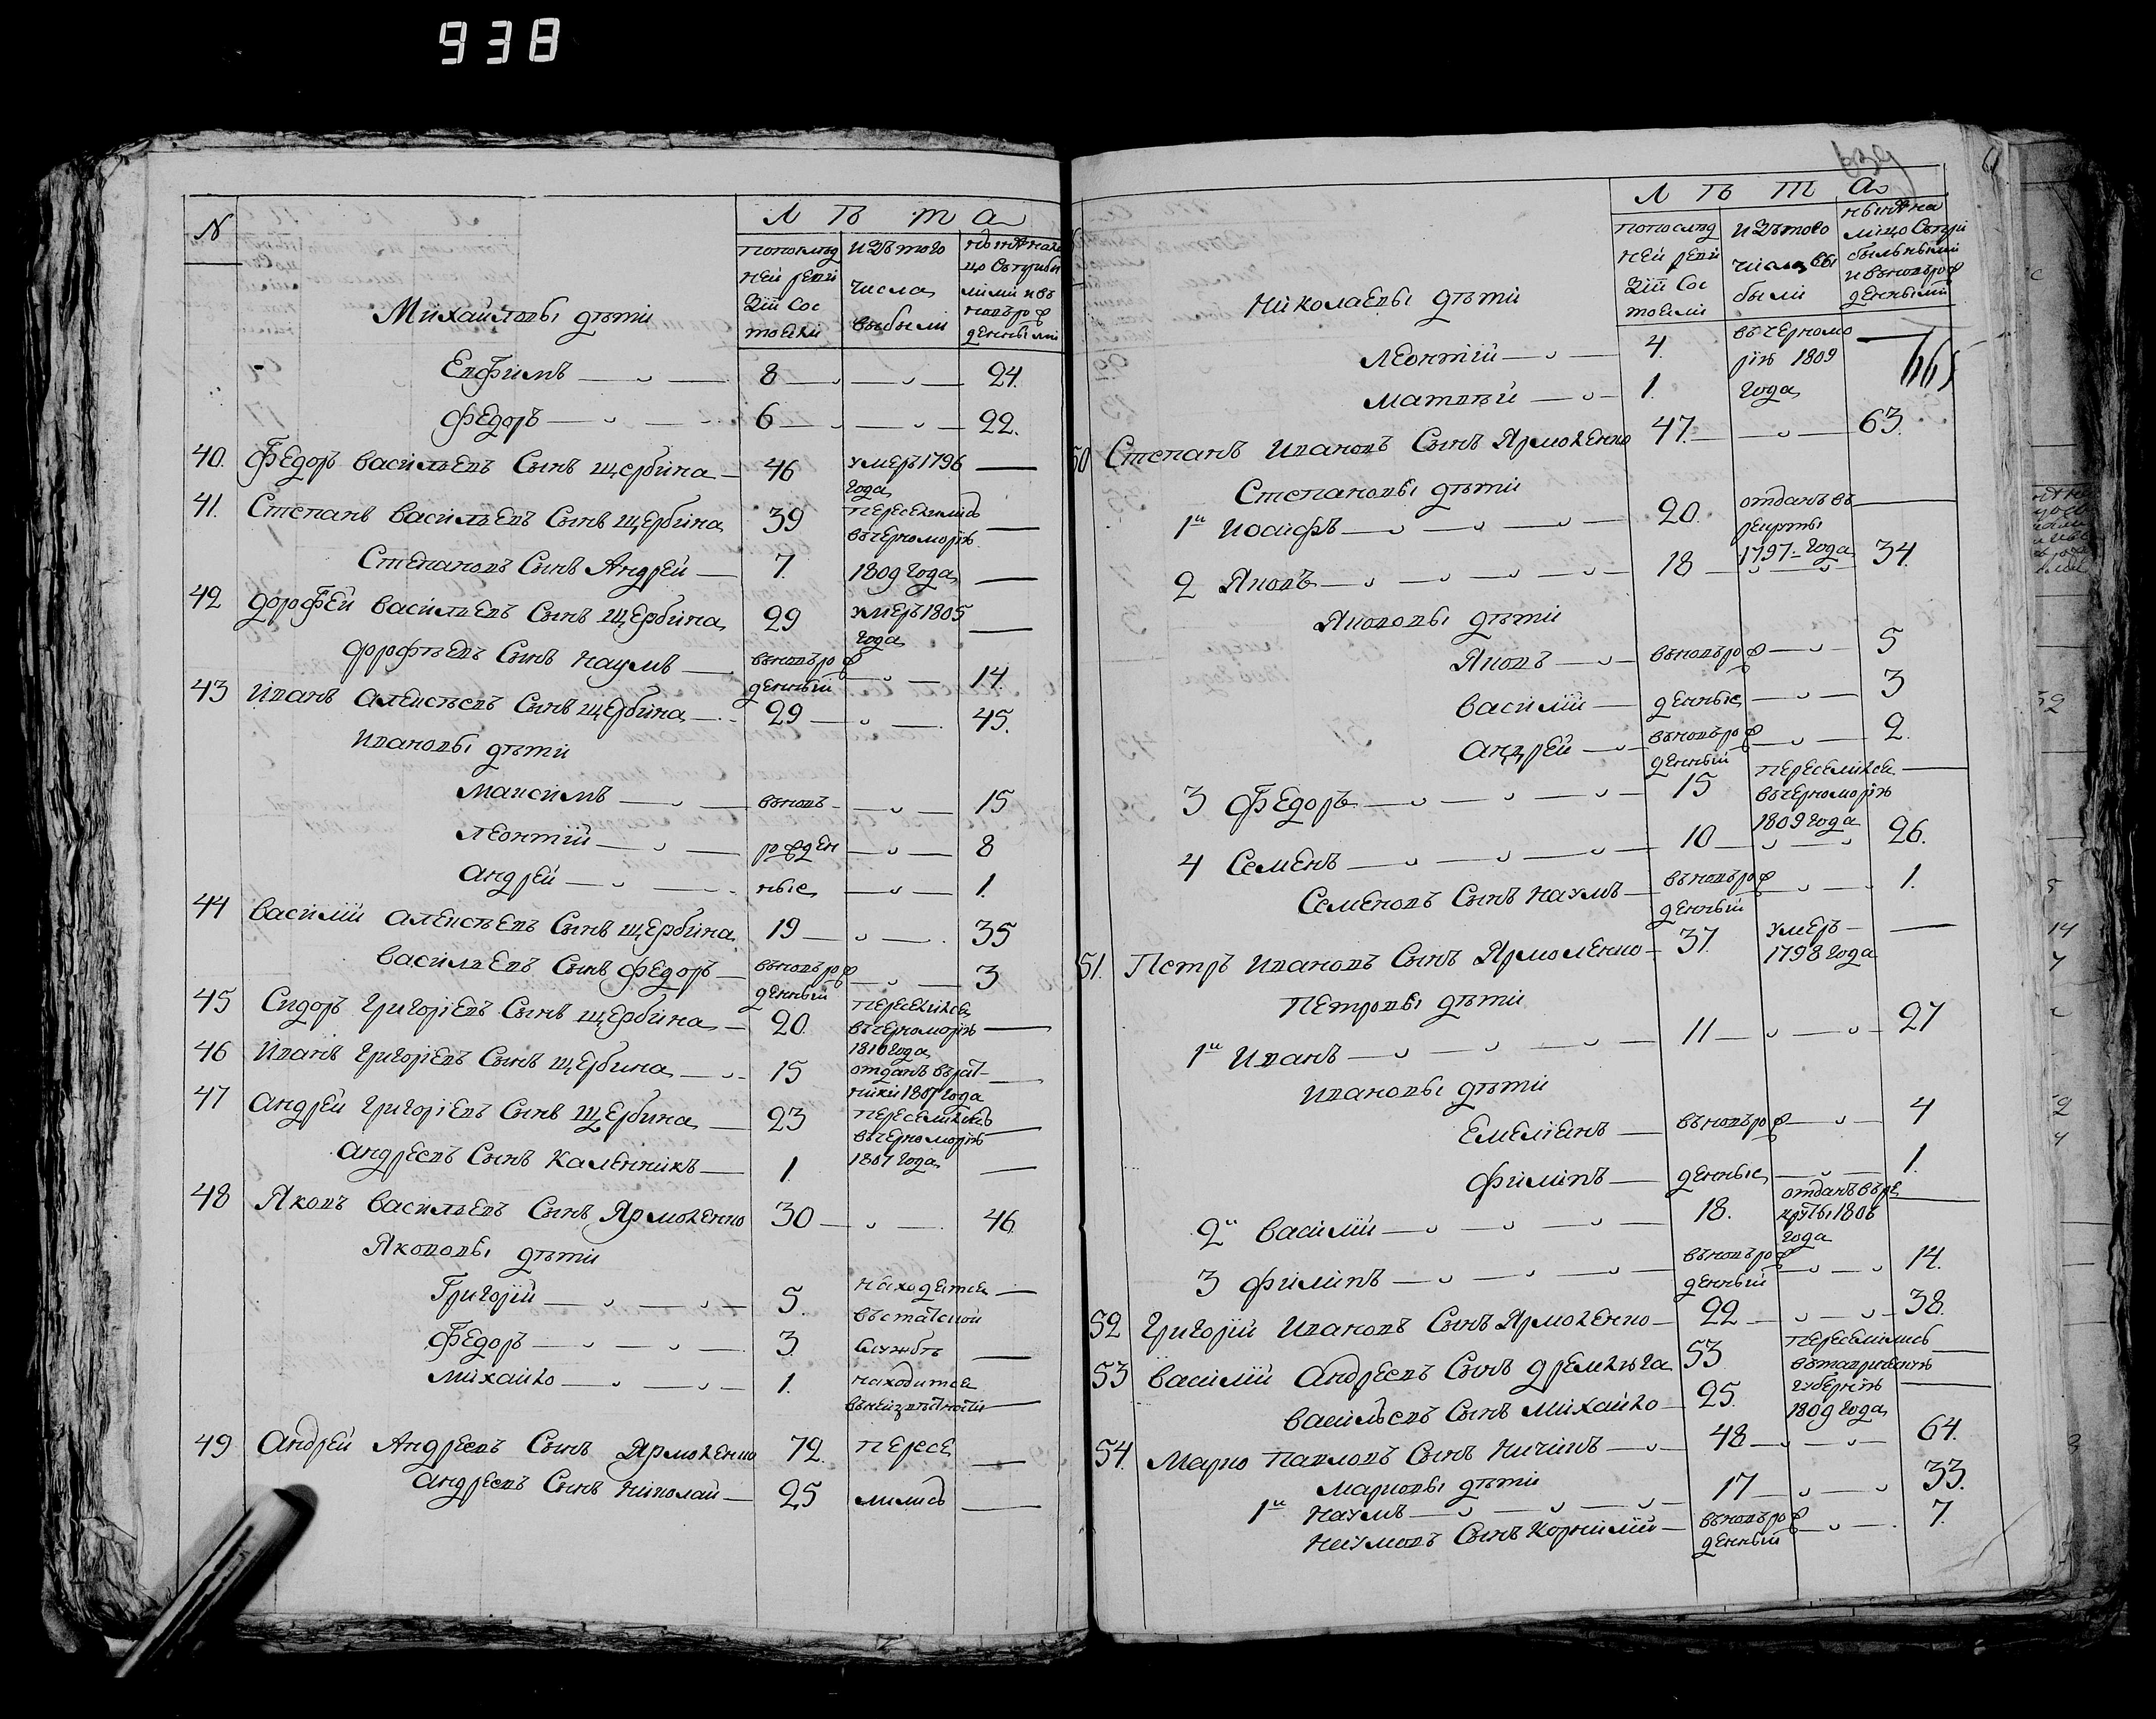 938
№
Л Ѣ т а
попослед
ней реви
зіи сос
тояли
изътого
числа
выбыли
Михайловы дѣти
Евфимъ 8 24.
Федоръ 6 22.
40. Федоръ васильевъ Сынъ щербина 46 умеръ 1796 года
41. Степанъ васильевъ Сынъ щербина 39 переселились
въчерноморїю
Степановъ Сынъ Андрей 7. 1809 года
42 дорофей васильевъ Сынъ щербина 29 умеръ 1805 года
дорофѣевъ Сынъ наумъ вновьрож
денный 14.
43 иванъ алексѣевъ Сынъ щербина 29 45.
ивановы дѣти
максимъ вновь 15
леонтій рожден 8
андрей ные 1.
44 василій алексѣевъ Сынъ щербина 19 35
васильевъ Сынъ федоръ вновьрож
денный 3
45 Сидоръ григорїевъ Сынъ щербина 20. переселился
въчерноморїю
1810 года
46 иванъ григорїевъ Сынъ щербина 15 отданъ върат-
ники 1807 года
47 андрей григорїевъ Сынъ щербина 23 переселились
въчерноморїю
андреевъ Сынъ Каленникъ 1. 1807 года
48 Яковъ васильевъ Сынъ Ярмоленко 30 46.
Якововы дѣти
Григорій 5. находятся
въстатской
Федоръ 3 службѣ
михайло 1. находится
49 андрей Андреевъ Сынъ Ярмоленко 72. пересе
андреевъ Сынъ николай 25 лились
639
Л Ѣ т а
попослед
ней реви
зіи сос
тояли
изътого
числа вы
были
николаевы дѣти
леонтій 4. въчерномо
рїю 1809
матвѣй 1. года
50 Степанъ ивановъ Сынъ Ярмоленко 47. 63.
Степановы дѣти
1й иосифъ 20. отданъ въ
рекруты
1797 года
2 Яковъ 18 34.
Якововы дѣти
Яковъ вновьрож 5
василій денные 3
андрей вновьрож
денный 2.
3 федоръ 15 переселился
въчерноморїю
1809 года
4 Семенъ 10 26.
Семеновъ Сынъ наумъ вновьрож
денный 1.
51. Петръ ивановъ Сынъ Ярмоленко 37. умеръ
1798 года
петровы дѣти
1й иванъ 11 27
ивановы дѣти
емелїянъ вновьрож 4
филипъ денные 1.
2й василій 18. отданъ въре
круты 1806
года
3 филипъ вновьрож
денный 14.
52 григорій ивановъ Сынъ Ярмоленко 22 38.
53 василій андреевъ Сынъ дремлюга 53 переселились
втаврическую
губернїю
васильевъ Сынъ михайло 25. 1809 года
54. марко павловъ Сынъ кичикъ 48 64.
марковы дѣти
1й наумъ 17 33.
наумовъ Сынъ Корнилій вновьрож
денный 7.